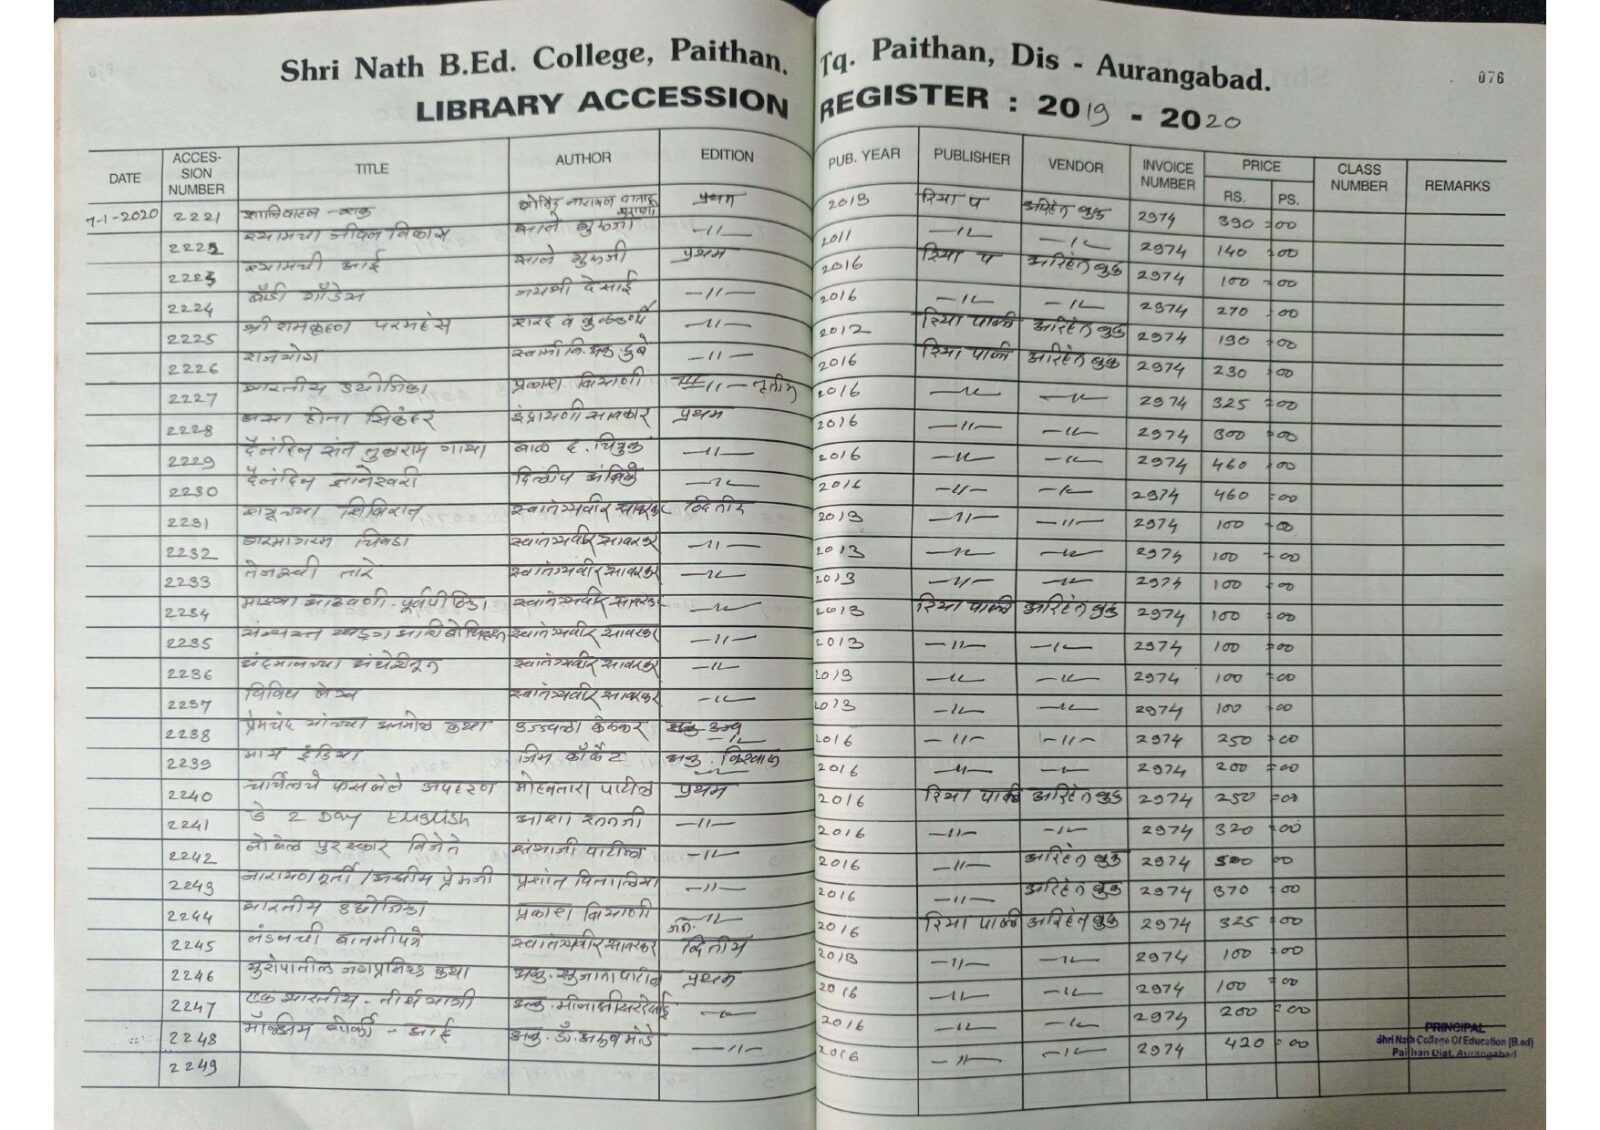 076
Shri Nath B.Ed. College, Paithan. Tq. Paithan, Dis - Aurangabad.
LIBRARY ACCESSION REGISTER : 2019 - 2020
DATE ACCES-SION NUMBER TITLE AUTHOR EDITION PUB. YEAR PUBLISHER VENDOR INVOICE NUMBER PRICE RS. PS. CLASS NUMBER REMARKS
7-1-2020 2221 शालिवाहन शक गोविंद नारायण प्रथम 2013 रिया प अरिहंत बुक 2974 390 =00
2222 श्यामचा जीवन विकास साने गुरुजी -11- 2011 -11- -11- 2974 140 =00
2223 श्यामची आई साने गुरुजी प्रथम 2016 रिया प अरिहंत बुक 2974 100 =00
2224 बॅंडी गॉडेस जयश्री देसाई -11- 2016 -11- -11- 2974 270 =00
2225 श्री रामकृष्ण परमहंस शरद व कुळकर्णी -11- 2012 रिया पाब्ली अरिहंत बुक 2974 190 =00
2226 राजयोग स्वामी -11- 2016 रिया पाब्ली अरिहंत बुक 2974 230 =00
2227 भारतीय उद्योजिका प्रकाश बियाणी -11- तृतीय 2016 -11- -11- 2974 325 =00
2228 असा होता सिकंदर इंद्रायणी सावकार प्रथम 2016 -11- -11- 2974 300 =00
2229 दैनंदिन संत तुकाराम गाथा बाळ द. चितुक -11- 2016 -11- -11- 2974 460 =00
2230 दैनंदिन ज्ञानेश्वरी दिलीप -11- 2016 -11- -11- 2974 460 =00
2231 शत्रूच्या शिबिरात स्वातंत्र्यवीर सावरकर द्वितीय 2013 -11- -11- 2974 100 =00
2232 गरमागरम चिवडा स्वातंत्र्यवीर सावरकर -11- 2013 -11- -11- 2974 100 =00
2233 तेजस्वी तारे स्वातंत्र्यवीर सावरकर -11- 2013 -11- -11- 2974 100 =00
2234 माझ्या आठवणी - पूर्वपीठिका स्वातंत्र्यवीर सावरकर -11- 2013 रिया पाब्ली अरिहंत बुक 2974 100 =00
2235 संन्यस्त खड्ग स्वातंत्र्यवीर सावरकर -11- 2013 -11- -11- 2974 100 =00
2236 अंदमानच्या अंधेरीतून स्वातंत्र्यवीर सावरकर -11- 2013 -11- -11- 2974 100 =00
2237 विविध लेख स्वातंत्र्यवीर सावरकर -11- 2013 -11- -11- 2974 100 =00
2238 प्रेमचंद यांच्या अनमोल कथा उज्ज्वला केळकर -11- 2016 -11- -11- 2974 250 =00
2239 माय इंडिया जिम कॉर्बेट अनु. विश्वास 2016 -11- -11- 2974 200 =00
2240 चर्चिलचे फसलेले अपहरण मोहनतारा पाटील प्रथम 2016 रिया पाब्ली अरिहंत बुक 2974 250 =00
2241 डे 2 Day English आशा रतनजी -11- 2016 -11- -11- 2974 320 =00
2242 नोबेल पुरस्कार विजेते संभाजी पाटील -11- 2016 -11- अरिहंत बुक 2974 500 =00
2243 नारायण मूर्ती / अझीम प्रेमजी प्रशांत -11- 2016 -11- अरिहंत बुक 2974 370 =00
2244 भारतीय उद्योजिका प्रकाश बियाणी -11- 2016 रिया पाब्ली अरिहंत बुक 2974 325 =00
2245 लंडनची बातमीपत्रे स्वातंत्र्यवीर सावरकर द्वितीय 2013 -11- -11- 2974 100 =00
2246 युरोपातील जगप्रसिद्ध कथा अनु. सुजाता पाटील प्रथम 2016 -11- -11- 2974 100 =00
2247 एक भारतीय - तीर्थयात्री अनु. मीनाक्षी सरदेसाई -11- 2016 -11- -11- 2974 200 =00
2248 मॅक्झिम गोर्की - आई अनु. डॉ. -11- 2016 -11- -11- 2974 420 =00
2249
PRINCIPAL
Shri Nath College Of Education (B.ed)
Paithan Dist. Aurangabad